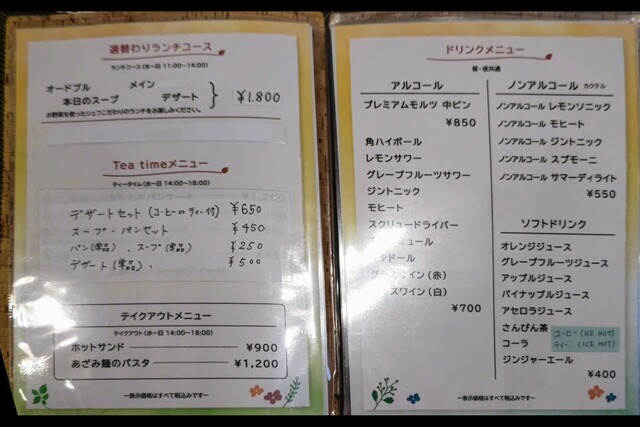 週替わりランチコース
ランチコース(水〜日 11:00〜14:00)
オードブル メイン
本日のスープ デザート
¥1.800
お野菜を使ったシェフこだわりのランチをお楽しみください。
Tea timeメニュー
ティータイム(水〜日 14:00〜18:00)
デザートセット(コーヒー or ティー付) ¥650
スープ・パンセット ¥450
パン(単品)、スープ(単品) ¥250
デザート(単品)、 ¥500
テイクアウトメニュー
テイクアウト(水〜日 14:00〜18:00)
ホットサンド ¥900
あざみ麺のパスタ ¥1,200
ー表示価格はすべて税込みですー
ドリンクメニュー
昼・夜共通
アルコール
プレミアムモルツ 中ビン
¥850
角ハイボール
レモンサワー
グレープフルーツサワー
ジントニック
モヒート
スクリュードライバー
ミュール
ドール
ワイン(赤)
スワイン(白)
¥700
ノンアルコール カクテル
ノンアルコール レモンソニック
ノンアルコール モヒート
ノンアルコール ジントニック
ノンアルコール スプモーニ
ノンアルコール サマーディライト
¥550
ソフトドリンク
オレンジジュース
グレープフルーツジュース
アップルジュース
パイナップルジュース
アセロラジュース
さんぴん茶 コーヒー(ICE.HOT)
コーラ ティー(ICE.HOT)
ジンジャーエール
¥400
ー表示価格はすべて税込みですー